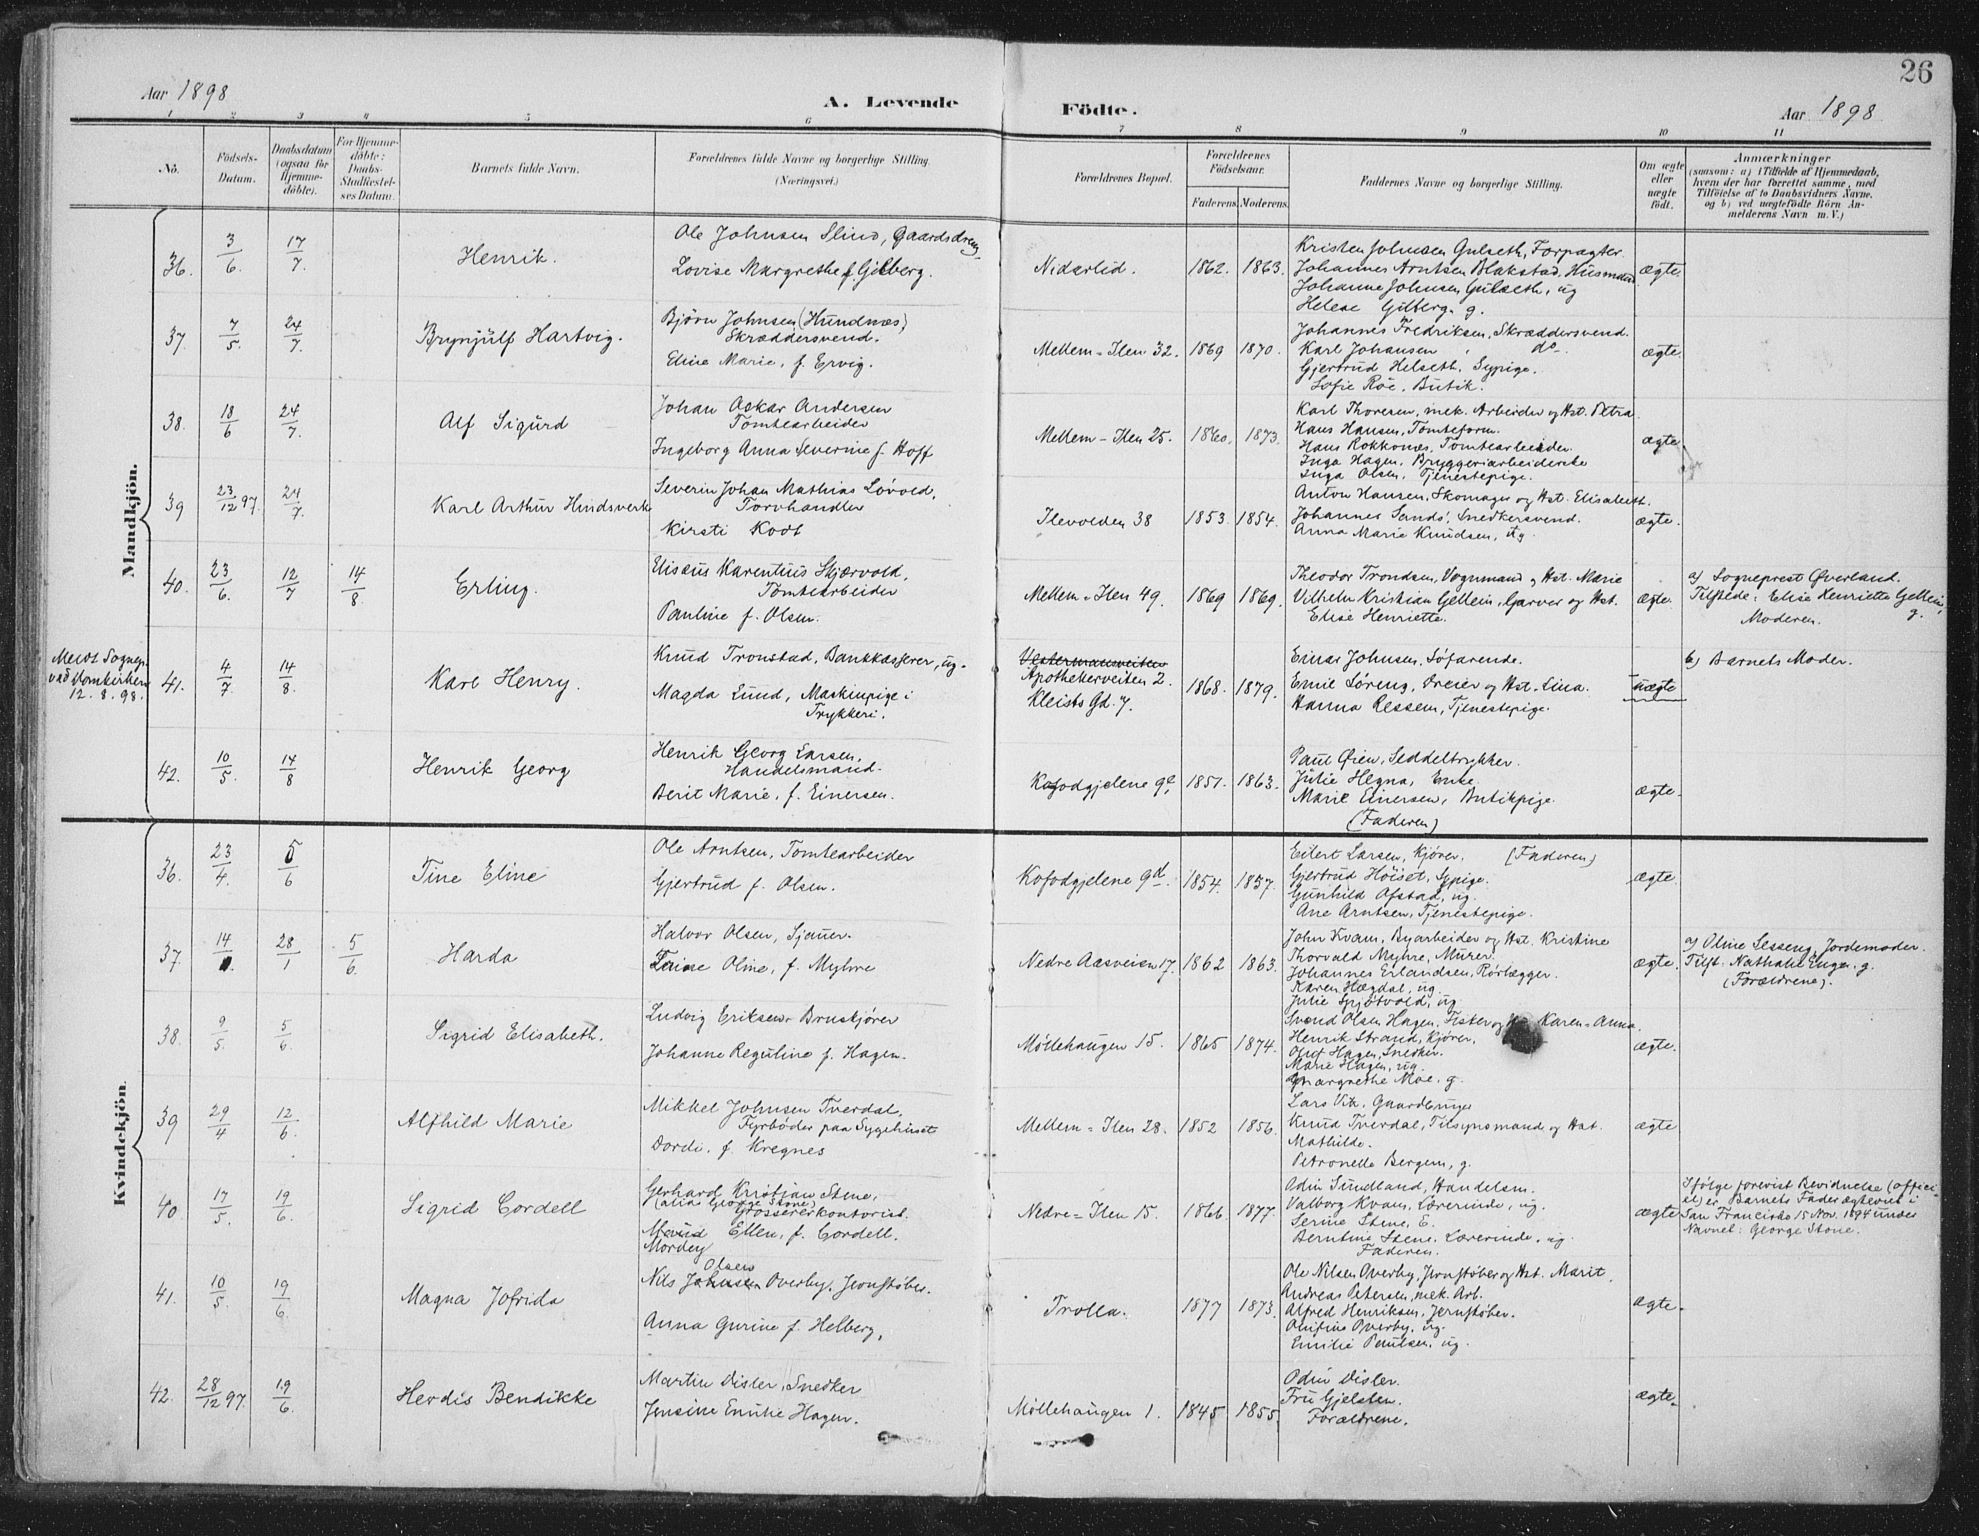 26
Aar 1898
A. Levende Födte.
Aar 1898
1 2 3 4 5 6 7 8 9 10 11
No.
Födsels-
Datum.
Daabsdatum
(ogsaa for
Hjemme-
döbte).
For Hjemme-
döbte:
Daabs-
Stadfæstel-
ses Datum.
Barnets fulde Navn.
Forældrenes fulde Navne og borgerlige Stilling.
(Næringsvei.)
Forældrenes Bopæl.
Forældrenes
Födselsaar.
Faderens. Moderens.
Faddernes Navne og borgerlige Stilling.
Om ægte
eller
uægte
födt.
Anmærkninger
(saasom: a) i Tilfælde af Hjemmedaab,
hvem der har forrettet samme, med
Tilföielse af to Daabsvidners Navne,
og b) ved uægtefödte Börn An-
melderens Navn m. V.)
Mandkjön.
36. 3/6 17/7 Henrik.
Ole Johnsen Slind, Gaardsdreng
Lovise Margrethe f. Gilberg.
Nidarlid. 1862. 1863.
Kristen Johnsen Gulseth, Forpagter
Johannes Arntsen Blakstad, Husmand
Johanne Johnsen Gulseth, ug
Helene Gilberg. g.
ægte.
37. 7/5. 24/7. Brynjülf Hartvig.
Bjørn Johnsen (Hundnæs)
Skræddersvend.
Eline Marie, f. Ervig.
Mellem-Ilen 32. 1869 1870.
Johannes Fredriksen, Skræddersvend.
Karl Johansen do.
Gjertrud Helseth, Sypige.
Sofie Roe, Butik.
ægte.
38. 18/6 24/7. Alf Sigurd
Johan Oskar Andersen
Tomtearbeider
Ingeborg Anna Severine f. Hoff
Mellem-Ilen 25. 1860. 1873.
Karl Thoresen, mek. Arbeider og Hst. Petra
Hans Hansen, Tomteform.
Hans Rokkones, Tomtearbeider.
Inga Hagen, Bryggeriarbeiderske
Inga Olsen, Tjenestepige.
ægte.
39 23/12 97. 24/7. Karl Arthur Hindsverk
Severin Johan Mathias Lövold,
Torvhandler
Kirsti Kodt
Ilevolden 38 1853. 1854.
Anton Hansen, Skomager og Hst. Elisabeth.
Johannes Sandö, Snedkersvend.
Anna Marie Knudsen, ug
ægte.
40. 23/6. 12/7 14/8. Erling.
Elisæus Karentius Skjærvold,
Tomtearbeider
Pauline f. Olsen.
Mellem-Ilen 49. 1869 1869.
Theodor Trondsen, Vognmand og Hst. Marie
Vilhelm Kristian Gellein, Garver og Hst.
Elise Henriette.
ægte.
a) Sogneprest Øverland.
Tilstede: Elise Henriette Gellein,
g.
Moderen.
Meldt Sognepr.
ved Domkirken
12.8.98.
41. 4/7. 14/8. Karl Henry.
Knud Tronstad, Bankkasserer, ug.
Magda Lund, Maskinpige i
Trykkeri.
Vestermannsveiten
Apothekerveiten 2.
Kleists Gd. 7.
1868. 1879.
Einar Johnsen, Söfarende.
Emil Löreng, Dreier og Hst. Lina.
Hanna Ressem, Tjenestepige.
uægte
b) Barnets Moder.
42. 10/5. 14/8 Henrik Georg
Henrik Georg Larsen,
Handelsmand.
Berit Marie, f. Einersen.
Kofodgjelene 9e. 1851. 1863.
Paul Øien, Seddeltrykker.
Julie Hegna, Enke.
Marie Einersen, Butikpige.
(Faderen)
ægte.
Kvindekjön.
36. 23/4. 5/6 Tine Eline
Ole Arntsen, Tomtearbeider
Gjertrud f. Olsen.
Kofodgjelene 9d. 1854. 1857.
Eilert Larsen, Kjörer. (Faderen)
Gjertrud Höiset, Sypige.
Gunhild Ofstad, ug.
Ane Arntsen, Tjenestepige.
ægte.
37. 14/1. 28/1 5/6. Harda
Halvor Olsen, Sjauer.
Trine Oline, f. Myhre
Nedre Aasveien 17. 1862 1863.
John Kvam, Byarbeider og Hst. Kristine
Thorvald Myhre, Murer.
Johannes Erlandsen, Rörlægger.
Karen Hægdal, ug.
Julie Spjötvold, ug
ægte.
a) Oline Sesseng, Jordemoder.
Tilst. Nathalie Enger. g.
(Forældrene).
38. 9/5. 5/6. Sigrid Elisabeth.
Ludvig Eriksen Bruskjörer
Johanne Reguline f. Hagen.
Möllehaugen 15. 1865 1874.
Svend Olsen Hagen, Fisker og Karen-Anna.
Henrik Strand, Kjörer,
Oluf Hagen, Snedker.
Marie Hagen, ug.
Margrethe Moe. g.
ægte.
39 29/4 12/6. Alfhild Marie
Mikkel Johnsen Tverdal,
Fyrböder paa Sygehuset
Dordi, f. Kregnes
Mellem-Ilen 28. 1852 1856.
Lars Vik, Gaardbruger
Knud Tverdal, Tilsynsmand og Hst.
Mathilde.
Petronelle Bergem, g.
ægte
40 17/5. 19/6. Sigrid Cordell
Gerhard Kristian Stene,
(alias George Stone)
Grossererkontorist.
Maud Ellen, f. Cordell.
Mordey
Nedre-Ilen 15. 1866 1877.
Odin Sundland, Handelsm.
Valborg Kvam, Lærerinde, ug.
Serine Stene, E.
Berntine Stene, Lærerinde, ug.
Faderen.
ægte
Ifölge forevist Bevidnelse (offici-
el) er Barnets Fader ægteviet i
San Francisko 15 Nov. 1894 under
Navnet: George Stone.
41. 10/5. 19/6 Magna Jofrida
Olsen
Nils Johnsen Overby, Jernstöber.
Anna Gurine f. Helberg,
Trolla. 1877 1873.
Ole Nilsen Overby, Jernstöber og Hst. Marit,
Andreas Petersen, mek. Arb.
Alfred Henriksen, Jernstöber.
Olufine Overby, ug.
Emilie Paulsen, ug.
ægte.
42. 28/12 97. 19/6 Herdis Bendikke
Martin Disler, Snedker
Jensine Emilie Hagen.
Möllehaugen 1. 1845 1855.
Odin Disler.
Fru Gjelsten.
Forældrene.
ægte.